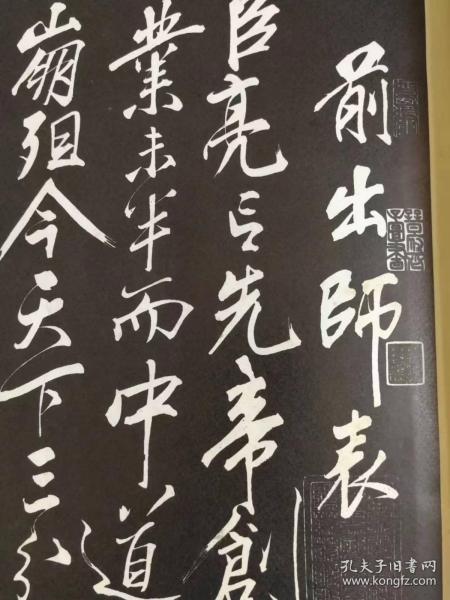 前出師表
臣亮言先帝創
業未半而中道
崩殂今天下三分
孔夫子旧书网
www.kongfz.com